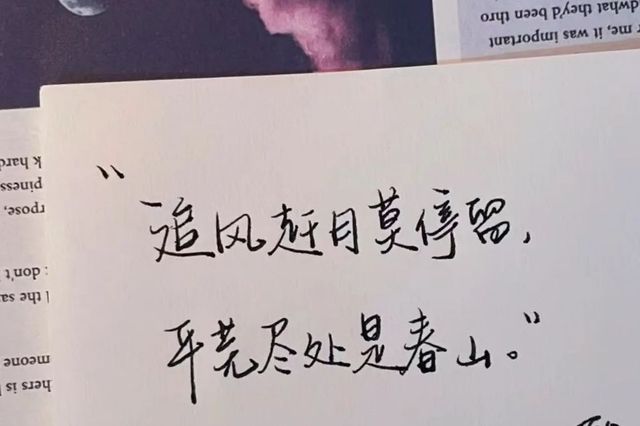 "追风赶月莫停留，
平芜尽处是春山。"
dwhat they'd been thro
r me, it was important
k hard
piness
rpose,
: don't
l the sa
meone
hers is l